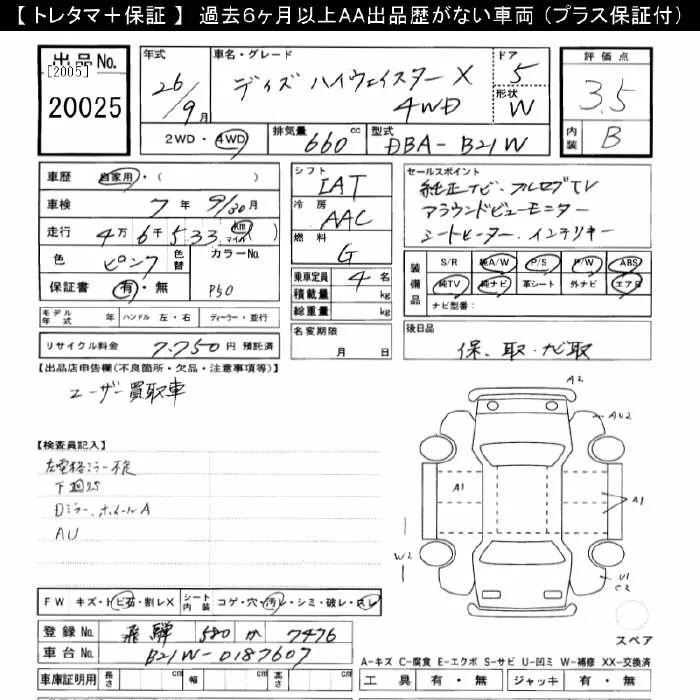 【 トレタマ＋保証 】 過去6ヶ月以上AA出品歴がない車両（プラス保証付）
出品No.
[2005]
20025
年式
26/9月
車名・グレード
デイズ ハイウェイスターX
4WD
ドア
5
形状
W
評価点
3.5
内装
B
2WD・4WD
排気量
660cc
型式
DBA-B21W
車歴
自家用・(
車検
7年 9/30月
走行
4万6千533 km マイル
色
ピンク
色替
カラーNo.
P50
保証書
有・無
モデル年式
年
ハンドル 左・右
ディーラー・並行
リサイクル料金
7,750円 預託済
シフト
IAT
冷房
AAC
燃料
G
乗車定員 4名
積載量 kg
総重量 kg
名変期限
月 日
セールスポイント
純正ナビ・フルセグTV
アラウンドビューモニター
シートヒーター、インテリキー
装備品
S/R 純A/W P/S P/W ABS
純TV 純ナビ 革シート 外ナビ エアB
ナビ型番(
後日品
保、取、ナビ取
【出品店申告欄(不良箇所・欠品・注意事項等)】
ユーザー買取車
【検査員記入】
左電格ミラー不良
下廻りS
Dミラー、ホイールA
AU
A2
AU2
A1
A1
W2
U1
C2
スペア
FW
キズ・トビ石・割レX
シート内装
コゲ・穴・汚レ・シミ・破レ・スレ
登録No.
飛騨 580 か 7476
車台No.
B21W-0187607
車庫証明用
長さ
cm
幅
cm
高さ
cm
A-キズ C-腐食 E-エクボ S-サビ U-凹ミ W-補修 XX-交換済
工具 有・無
ジャッキ 有・無